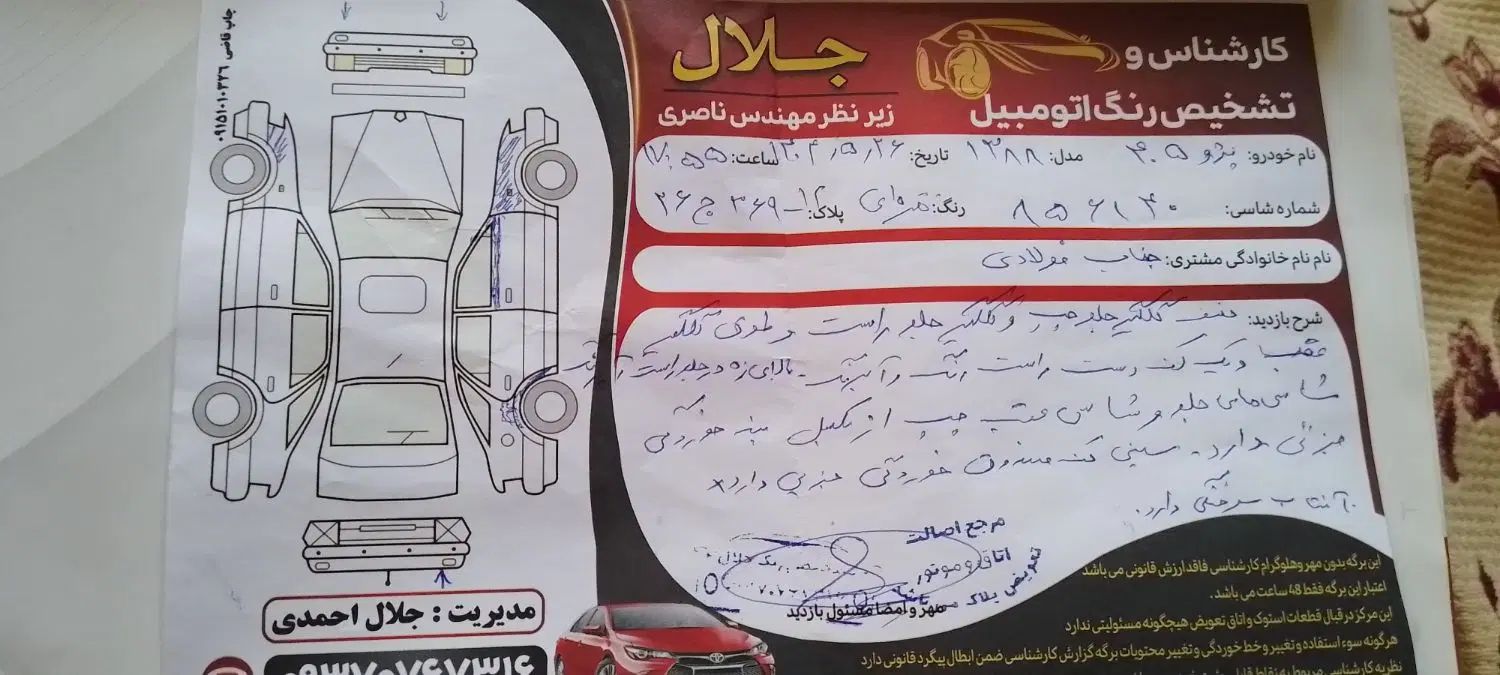 کارشناس و
تشخیص رنگ اتومبیل
جلال
زیر نظر مهندس ناصری
نام خودرو: پژو ۴۰۵ مدل: ۱۳۸۸ تاریخ: ۱۴۰۴/۵/۲۶ ساعت: ۱۷:۵۵
شماره شاسی: ۸۵۶۱۳۰ رنگ: نقره‌ای پلاک: ۱۲-۳۶۹ ج ۲۶
نام نام خانوادگی مشتری: جناب فولادی
شرح بازدید: نصف گلگیر جلو چپ و گلگیر جلو راست و طوی گلگیر
عقب و یک کف دست راست رنگ و آبرنگ - بالای زه در جلو راست آبرنگ
شاسی‌های جلو و شاسی عقب چپ از
جزئی دارد - سینی کف صندوق خوردگی جزیی دارد
آفتاب سوختگی دارد.
مرجع اصالت
اتاق و موتور
تعویض پلاک
مهر و امضا مسئول بازدید
این برگه بدون مهر و هلوگرام کارشناسی فاقد ارزش قانونی می باشد
اعتبار این برگه فقط 48 ساعت می باشد.
این مرکز در قبال قطعات استوک و اتاق تعویض هیچگونه مسئولیتی ندارد
هرگونه سوء استفاده و تغییر و خط خوردگی و تغییر محتویات برگه گزارش کارشناسی ضمن ابطال پیگرد قانونی دارد
نظریه کارشناسی مربوط به نقاط
چاپ قاضی ۰۹۱۵۱۰۱۰۳۲۶
مدیریت : جلال احمدی
۰۹۳۷۰۷۶۷۳۱۶